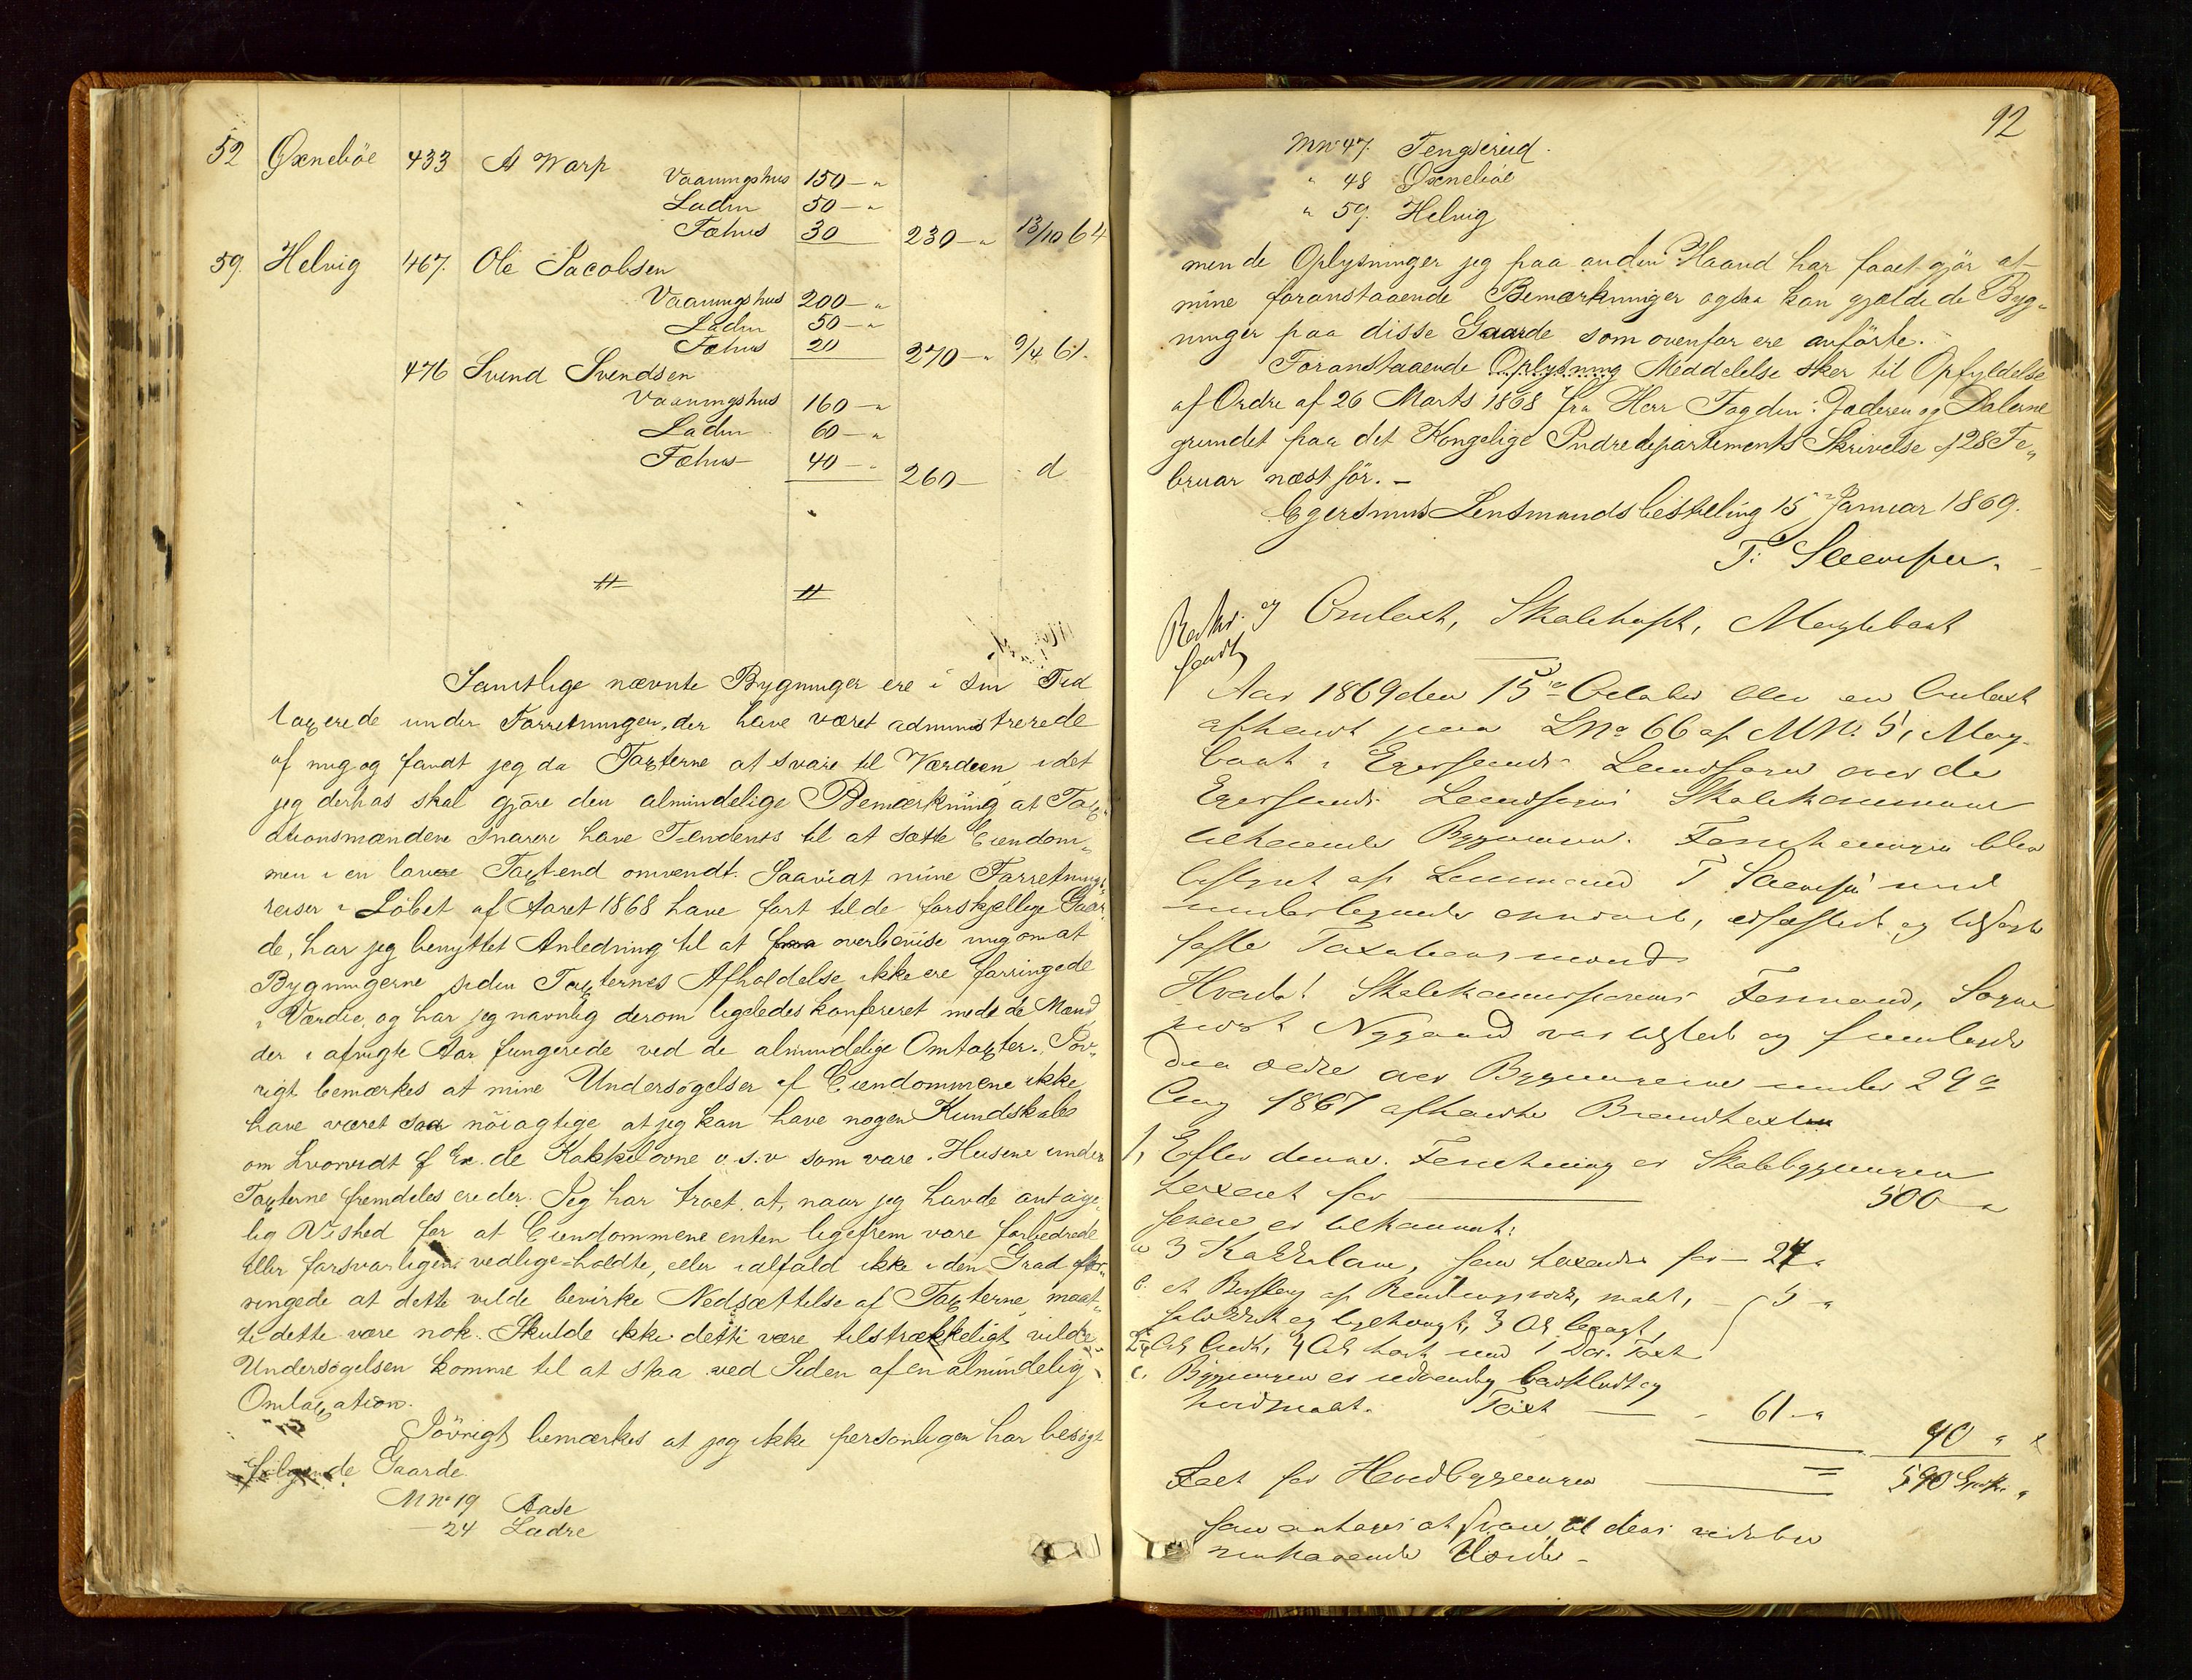 52 Øxneböe 433 A Warp Vaaningshus 150 - "
Laden 50 - "
Fæhus 30 230 - " 13/10 64
59. Helvig 467. Ole Jacobsen
Vaaningshus 200 - "
Laden 50 - "
Fæhus 20 270 - " 9/4 61.
476 Svend Svendsen
Vaaningshus 160 - "
Laden 60 - "
Fæhus 40 - " 260 - d
Samtlige nævnte Bygninger ere i sin Tid
taxerede under Forretninger, der have været administrerede
af mig og fandt jeg da Taxterne at svare til Værdien, idet
jeg derhos skal gjöre den almindelige Bemærkning at Tax-
ationsmændene snarere have Tendents til at sætte Eiendom-
men i en lavere Taxt end omvendt. Saavidt mine Forretnings-
reiser i Löbet af Aaret 1868 have fört til de forskjellige Gaar-
de, har jeg benyttet Anledning til at overbevise mig om at
Bygningerne siden Taxternes Afholdelse ikke ere forringede
i Værdie, og har jeg navnlig derom ligeledes konfereret med de Mænd
der i afvigte Aar fungerede ved de almindelige Omtaxter. Iöv-
rigt bemærkes at mine Undersögelser af Eiendommene ikke
have været saa nöiagtige at jeg kan have nogen Kundskab
om hvorvidt f Ex. de Kakkelovne o. s. v som vare i Husene under
Taxterne fremdeles ere der. Jeg har troet at, naar jeg havde antage-
lig Vished for at Eiendommene enten ligefrem vare forbedrede
eller forsvarligen vedlige-holdte, eller ialfald ikke i den Grad for-
ringede at dette vilde bevirke Nedsættelse af Taxterne, maat-
te dette være nok. Skulde ikke dette være tilstrækkeligt vilde
Undersögelsen komme til at staa ved Siden af en almindelig
Omtaxation.
Iövrigt bemærkes at jeg ikke personligen har besögt
fölgende Gaarde
M No 19 Aase
- 24 Ladre
92
M No 47. Tengsereid.
" 48 Øxneböe
" 59. Helvig
men de Oplysninger jeg paa anden Haand har faaet gjör at
mine foranstaaende Bemærkninger ogsaa kan gjælde de Byg-
ninger paa disse Gaarde som ovenfor ere anförte.
Foranstaaende Oplysning Meddelelse sker til Opfyldelse
af Ordre af 26 Marts 1868 fra Herr Fogden i Jæderen og Dalerne
grundet paa det Kongelige Indredepartements Skrivelse af 28 Fe-
bruar næst för. -
Egersunds Lensmandsbestilling 15 Januar 1869.
og Omtaxt, Skolehuset, Myglebost
Aar 1869 den 15de October blev en Omtaxt
afholdt paa L No 66 af M N. 5,
Egersunds Landsogn over de
Egersunds Landsogns Skolekommune
tilhørende Bygninger. Forretningen blev
bestyret af Lensmand T
undertegnede opnævnte, edfæstede og
faste Taxationsmænd
Hvorda! Skolekommissionens Formand, Sogne
præst Nygaard var tilstede og fremlagde
den over Bygningerne under 29de
Aug 1867 afholdte Brandtaxt
1, Efter denne Forretning er Skolebygningen
taxeret for 500 "
senere er tilkommet:
a 3 Kakkelovne, som taxeres for - 24 "
b. et af maalt, - 5 "
3 Al
Al 4 Al 1 Dör. Taxt
c. Bygningen er udvendig bordklædt og
hvidmalet. Taxt - " 61 - "
90 "
for Hovedbygningen = 590 Spd. "
som antages at svare til dens
Værdi -